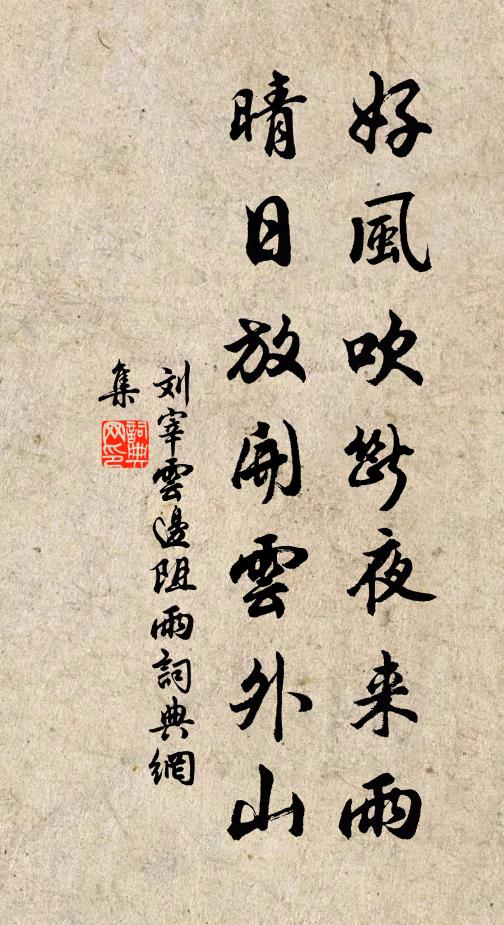 好風吹断夜来雨
晴日放開雲外山
刘宰雲邊阻雨詞典網
集
詞典
网印